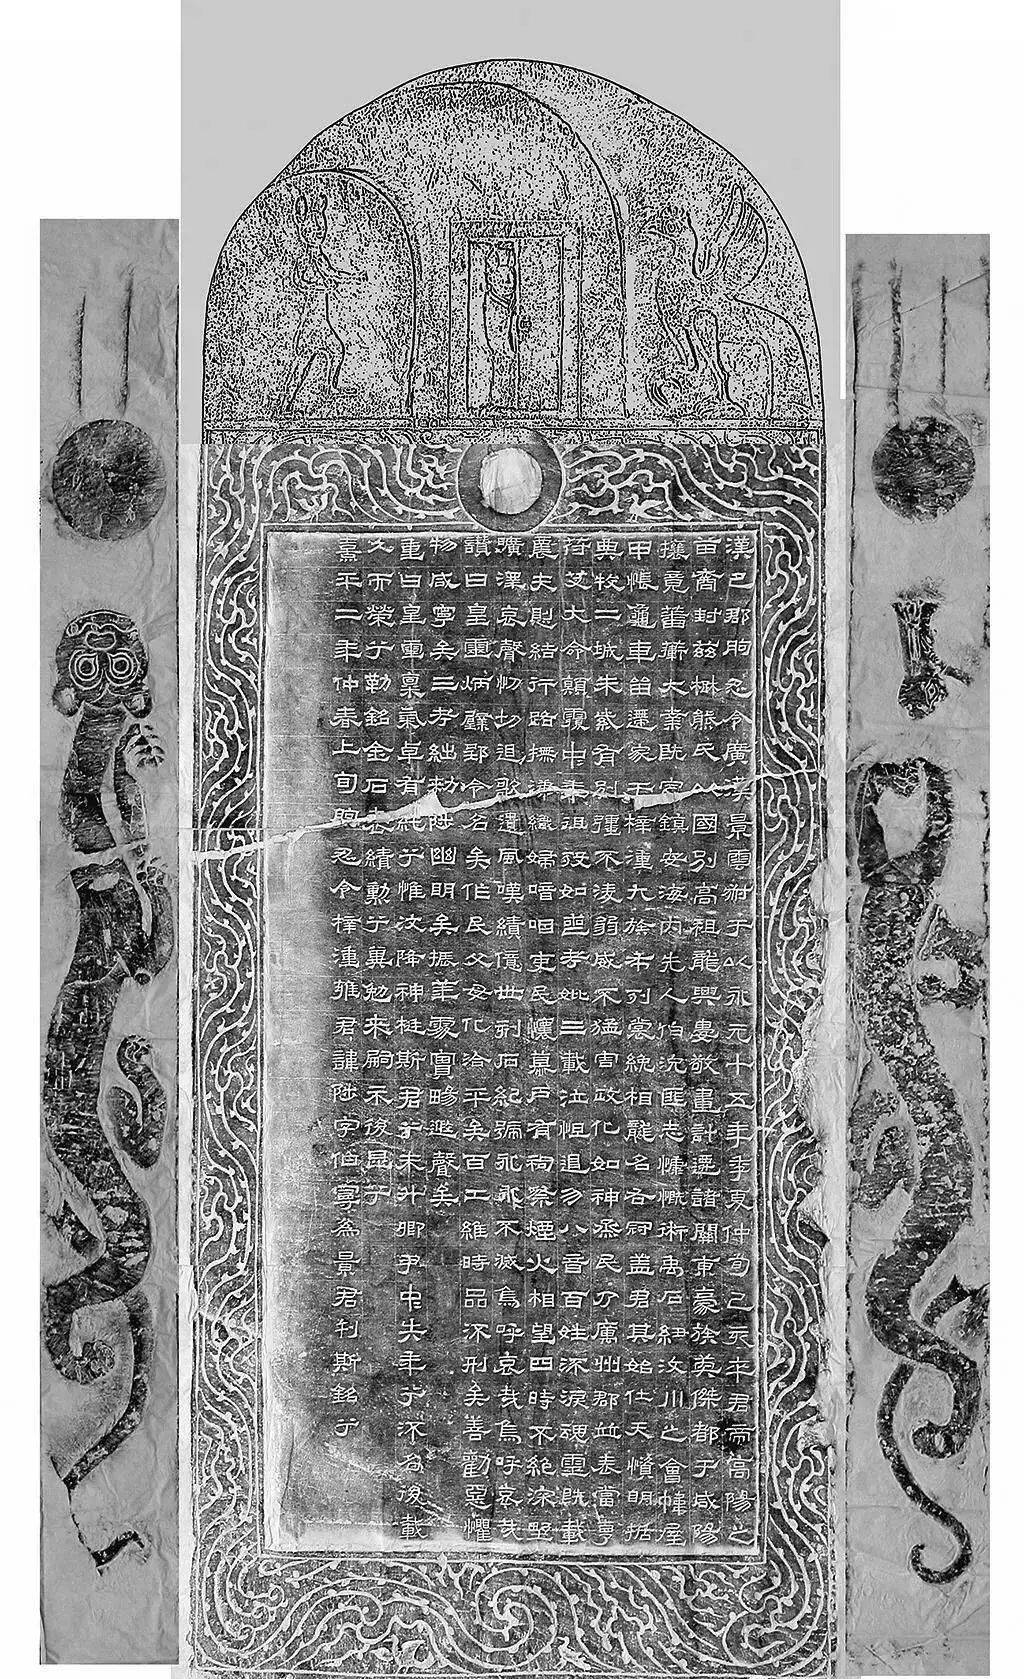 漢巴郡朐忍令廣漢景雲叔于以永元十五年季夏仲旬己亥卒君帝高陽之
苗裔封茲楚熊氏以國別高祖龍興婁敬畫計遷諸關東豪族英傑都于咸陽
攘竟蕃衛大業既定鎮安海內先人伯沇匪志慷慨術禹石紐汶川之會幃屋
甲帳龜車留遰家于梓潼九族布列裳絻相龍名右冠蓋君其始仕天資明括
典牧二城朱紫有別彊不淩弱威不猛害政化如神烝民乃厲州郡並表當享
符艾大命顛覆中年徂歿如喪考妣三載泣怛遏勿八音百姓流淚魂靈既載
農夫惻結行路撫涕織婦喑咽吏民懷慕戶有祠祭煙火相望四時不絕深野
曠澤哀聲忉切追歌遺風嘆績億世刻石紀號永永不滅烏呼哀哉烏呼哀哉
讚曰皇靈炳璧郢令名矣作民父母化洽平矣百工維時品流刑矣善勸惡懼
物咸寧矣三考絀敕陟幽明矣振華處實暘遐聲矣
重曰皇靈稟氣卓有純兮惟汶降神挺斯君兮未升卿尹中失年兮流名後載
久而榮兮勒銘金石表績勳兮冀勉來嗣示後昆兮
熹平二年仲春上旬朐忍令梓潼雍君諱陟字伯寧為景君刊斯銘兮